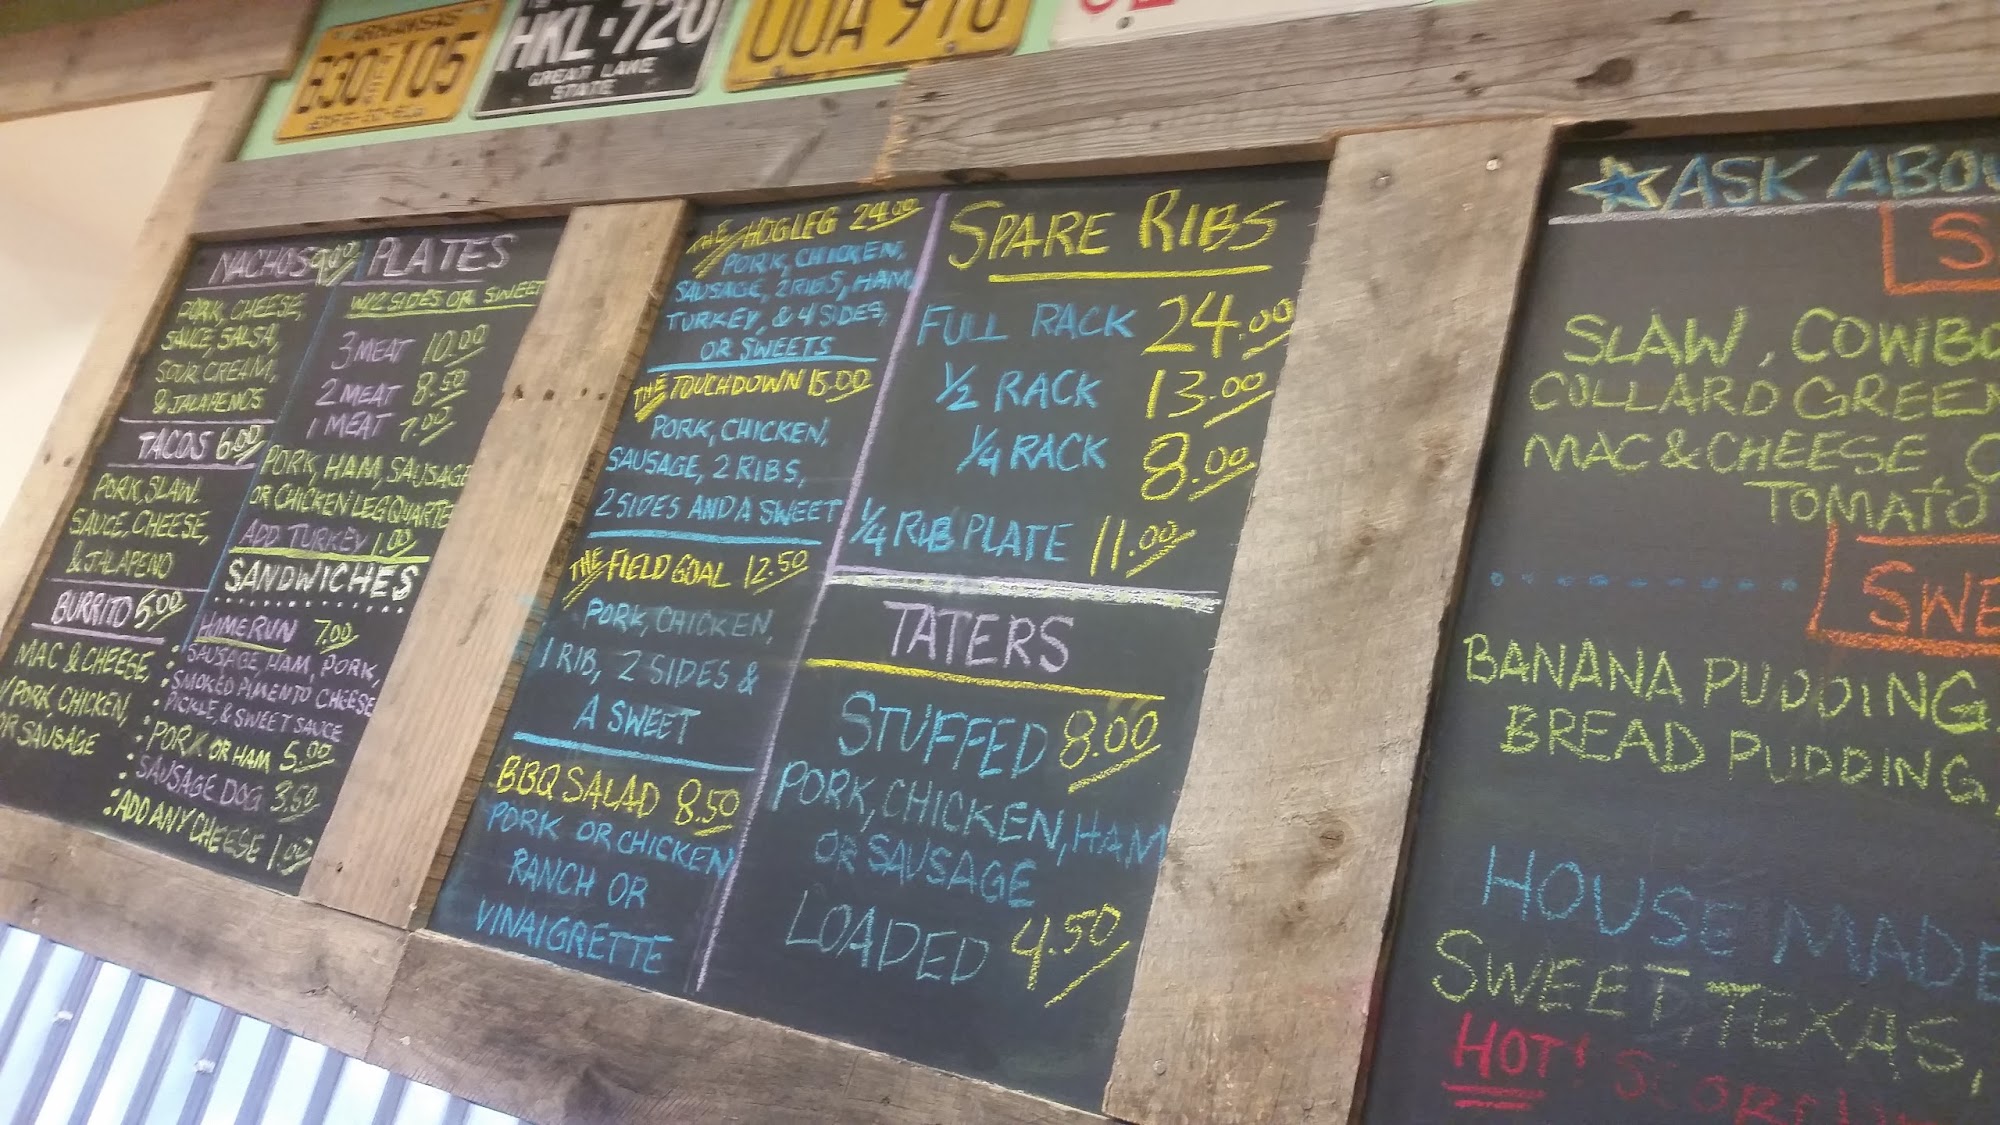 ARKANSAS
B30 105
HKL·720
GREAT LAKE
STATE
UUA 970
NACHOS 9.00
PORK, CHEESE,
SAUCE, SALSA,
SOUR CREAM,
& JALAPENOS
TACOS 6.00
PORK, SLAW,
SAUCE, CHEESE,
& JALAPENO
BURRITO 5.00
MAC & CHEESE,
W/ PORK, CHICKEN,
OR SAUSAGE
PLATES
W/2 SIDES OR SWEET
3 MEAT 10.00
2 MEAT 8.50
1 MEAT 7.00
PORK, HAM, SAUSAGE
OR CHICKEN LEG QUARTE
ADD TURKEY 1.00
SANDWICHES
HOMERUN 7.00
SAUSAGE, HAM, PORK,
SMOKED PIMENTO CHEESE
PICKLE, & SWEET SAUCE
PORK OR HAM 5.00
SAUSAGE DOG 3.50
ADD ANY CHEESE 1.00
THE HOGLEG 24.00
PORK, CHICKEN,
SAUSAGE, 2 RIBS, HAM,
TURKEY, & 4 SIDES,
OR SWEETS
THE TOUCHDOWN 15.00
PORK, CHICKEN,
SAUSAGE, 2 RIBS,
2 SIDES AND A SWEET
THE FIELD GOAL 12.50
PORK, CHICKEN,
1 RIB, 2 SIDES &
A SWEET
BBQ SALAD 8.50
PORK OR CHICKEN
RANCH OR
VINAIGRETTE
SPARE RIBS
FULL RACK 24.00
1/2 RACK 13.00
1/4 RACK 8.00
1/4 RIB PLATE 11.00
TATERS
STUFFED 8.00
PORK, CHICKEN, HAM
OR SAUSAGE
LOADED 4.50
ASK ABOU
S
SLAW, COWBO
COLLARD GREEN
MAC & CHEESE, 
TOMATO
SWE
BANANA PUDDING,
BREAD PUDDING,
HOUSE MADE
SWEET, TEXAS,
HOT!